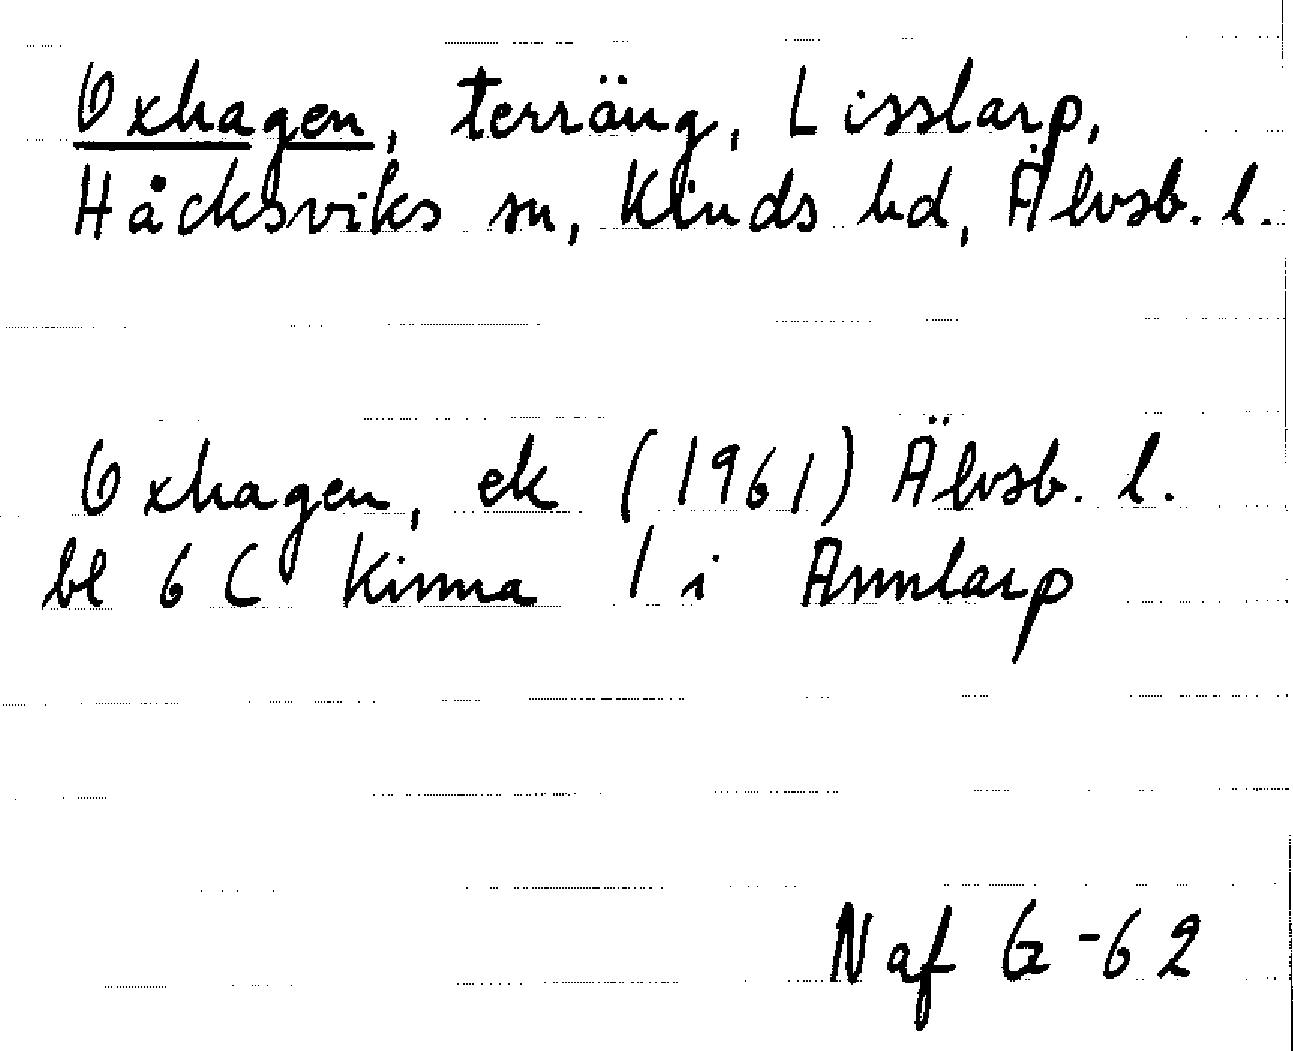 Oxhagen, terräng, Lisslarp,
Håcksviks sn, Kinds hd, Älvsb. l.
Oxhagen, ek (1961) Älvsb. l.
bl 6 C Kinna 1 i Annlarp
Naf G-62